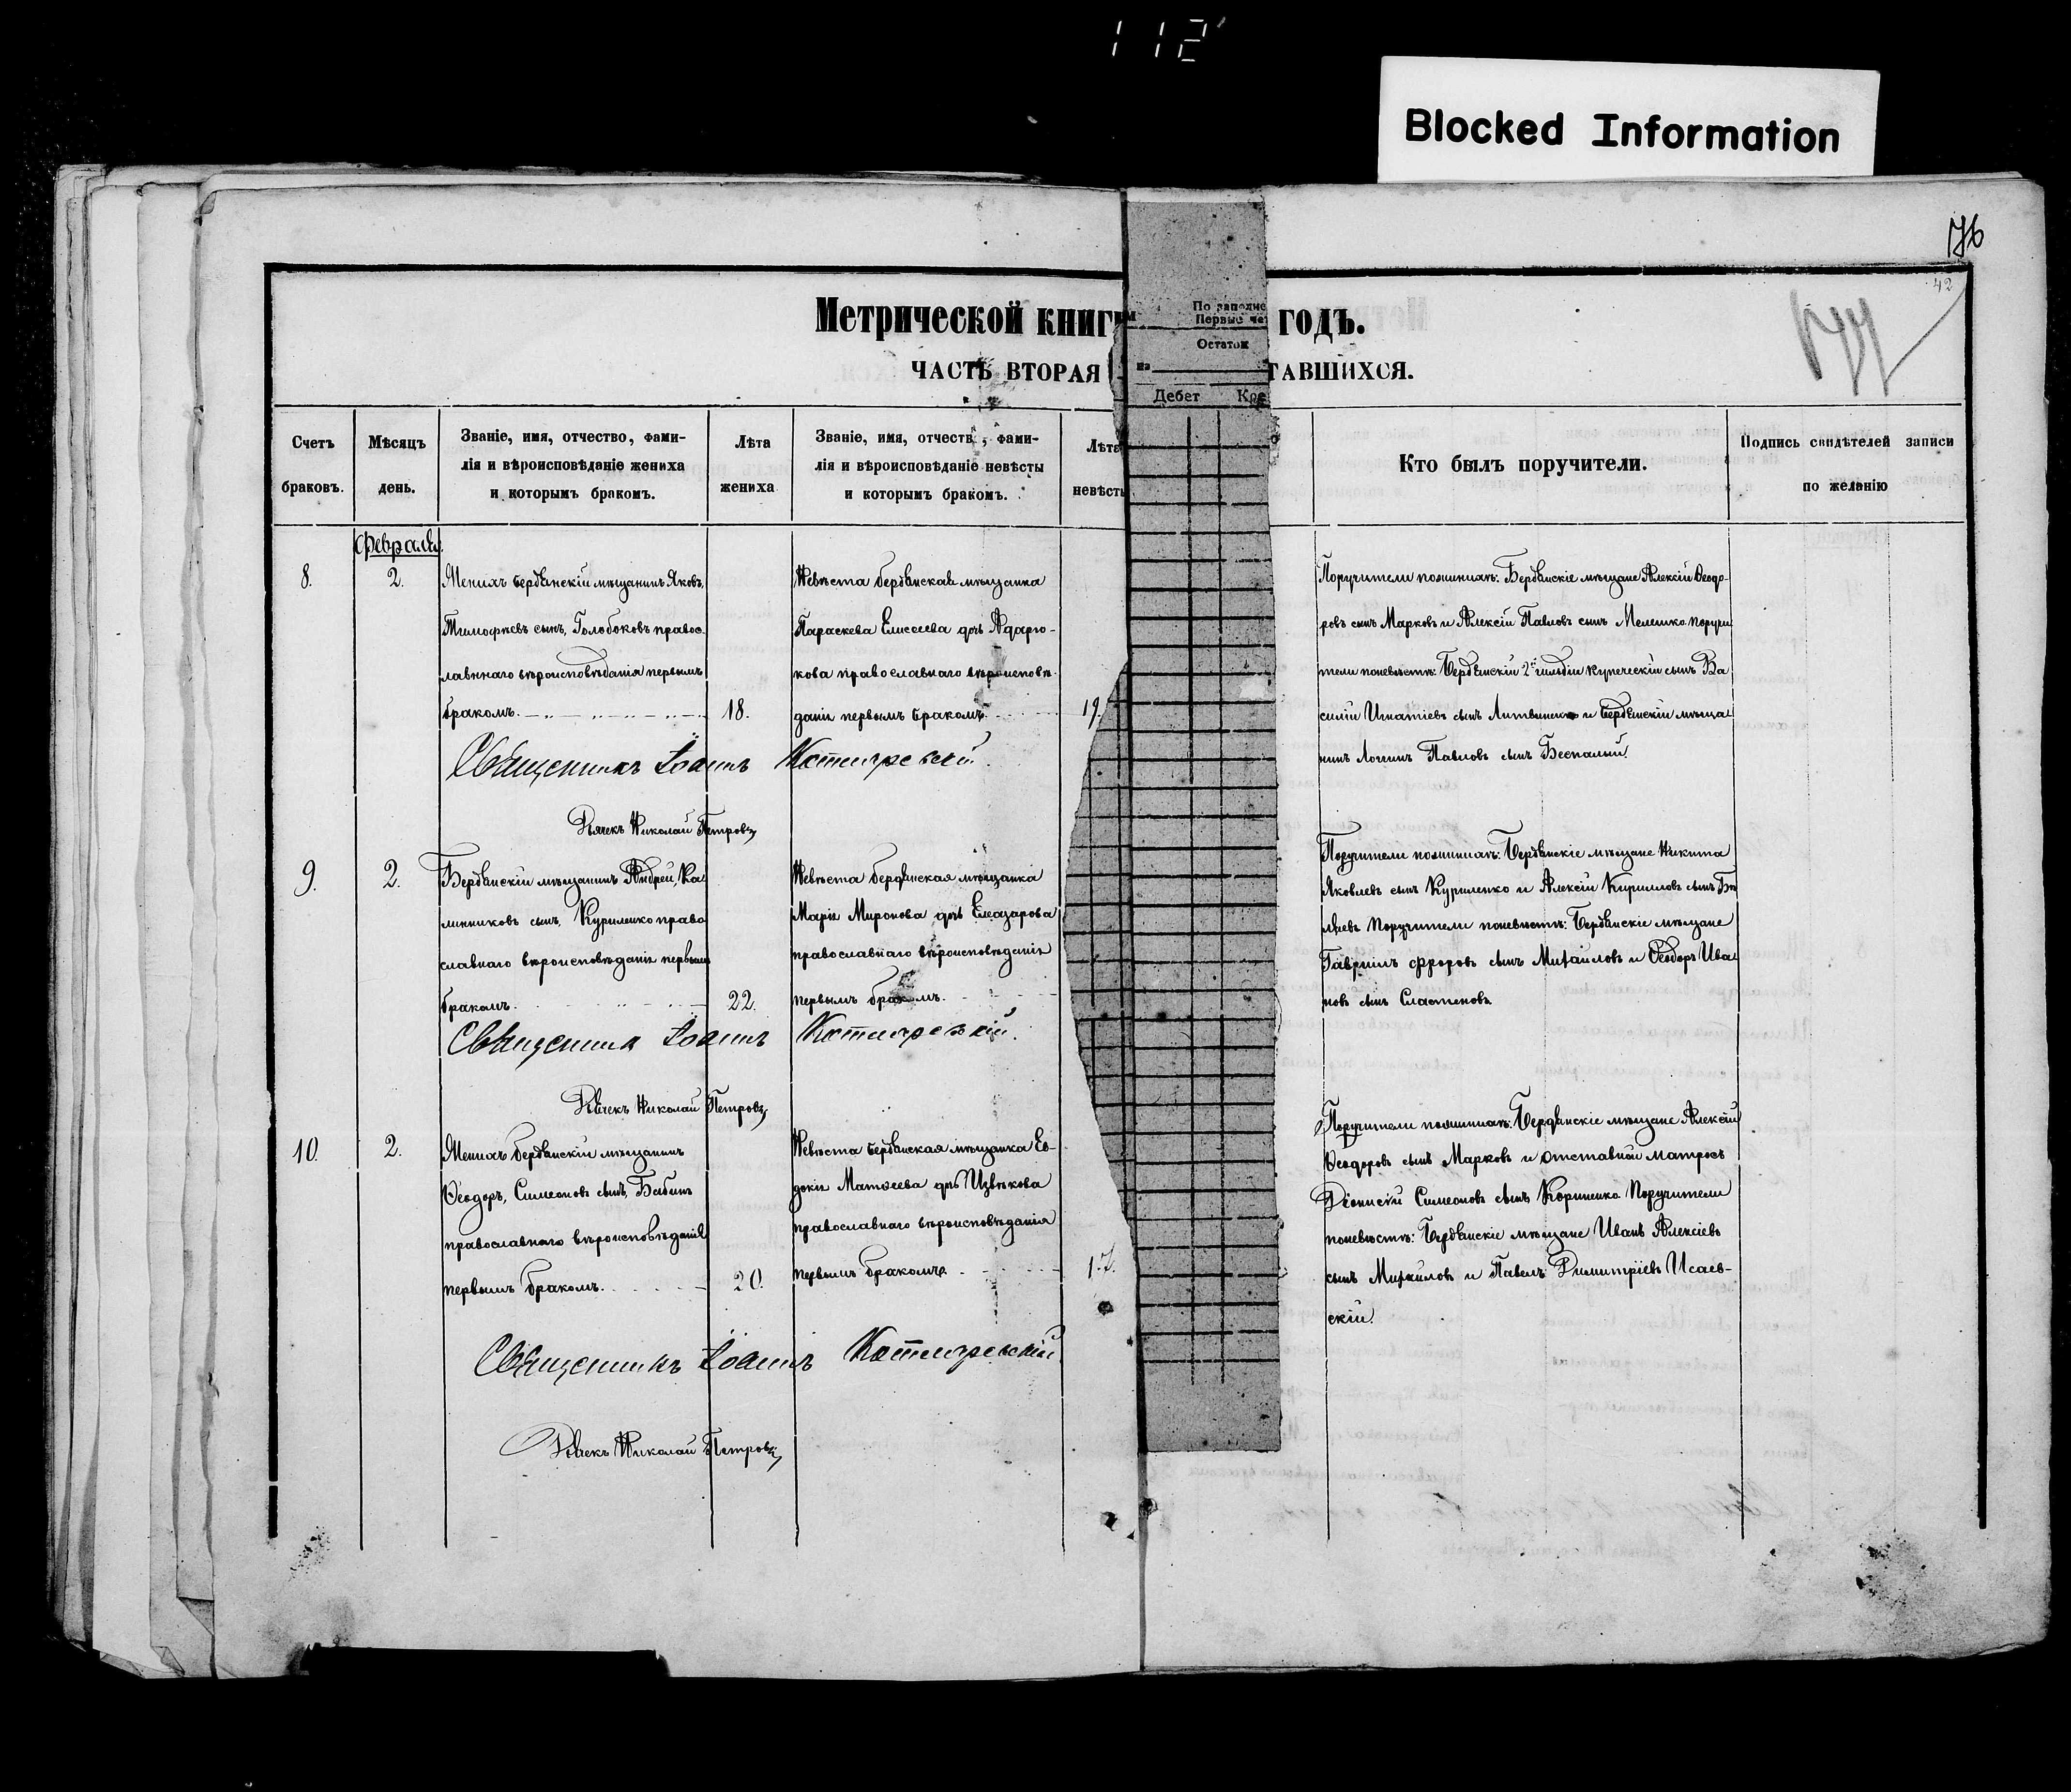 112
Blocked Information
176
42
177
Метрической книг
годъ.
По заполне
Первые че
Остаток
на
Дебет Кре
ЧАСТЬ ВТОРАЯ
ТАВШИХСЯ.
Счетъ браковъ.
Мѣсяцъ день.
Званіе, имя, отчество, фами-
лія и вѣроисповѣданіе жениха
и которымъ бракомъ.
Лѣта жениха
Званіе, имя, отчеств , фами-
лія и вѣроисповѣданіе невѣсты
и которымъ бракомъ.
Лѣта невѣсты
Кто былъ поручители.
Подпись свидѣтелей записи
по желанію
Февраля.
8.
2.
Женихъ бердянскій мѣщанинъ Яковъ,
Тимофѣевъ сынъ, Голобоковъ правос-
лавнаго вѣроисповѣданія первымъ
бракомъ.
18.
Невѣста бердянская мѣщанка
Параскева Елисеева дчь Адарю-
кова православнаго вѣроисповѣ-
данія первымъ бракомъ.
19.
Поручители поженихѣ: Бердянскіе мѣщане Алексій Ѳеодо-
ровъ сынъ Марковъ и Алексій Павловъ сынъ Мелешко поручи
тели поневѣстѣ: Бердянскій 2й гильдіи купеческій сынъ Ва
силій Игнатіевъ сынъ Литвиненко и бердянскій мѣща
нинъ Логинъ Павловъ сынъ Беспалый.
Священникъ Іоаннъ Котляревскій.
Дьячекъ Николай Петровъ
9.
2.
Бердянскій мѣщанинъ Андрей, Ка
линниковъ сынъ, Куриленко право
славнаго вѣроисповѣданія первымъ
бракомъ.
22.
Невѣста бердянская мѣщанка
Марія Миронова дчь Елеазарова
православнаго вѣроисповѣданія
первымъ бракомъ.
Поручители поженихѣ: Бердянскіе мѣщане Никита
Яковлевъ сынъ Куриленко и Алексій Кирилловъ сынъ Бѣ
ляевъ Поручители поневѣстѣ: Бердянскіе мѣщане
Гавріилъ Фроровъ сынъ Михайловъ и Ѳеодоръ Ива
новъ сынъ Сластеновъ.
Священникъ Іоаннъ Котляревскій.
Дьячекъ Николай Петровъ
10.
2.
Женихъ бердянскій мѣщанинъ
Ѳеодоръ, Симеоновъ сынъ, Бабинъ
православнаго вѣроисповѣданія
первымъ бракомъ.
20.
Невѣста бердянская мѣщанка Ев-
докія Матѳеева дчь Извѣкова
православнаго вѣроисповѣданія
первымъ бракомъ.
17.
Поручители поженихѣ: Бердянскіе мѣщане Алексій
Ѳеодоровъ сынъ Марковъ и отставной матросъ
Діонисій Симеоновъ сынъ Корниенко Поручители
поневѣстѣ: Бердянскіе мѣщане Иванъ Алексіевъ
сынъ Михайловъ и Павелъ Димитріевъ Исаев-
скій.
Священникъ Іоаннъ Котляревскій
Дьячекъ Николай Петровъ